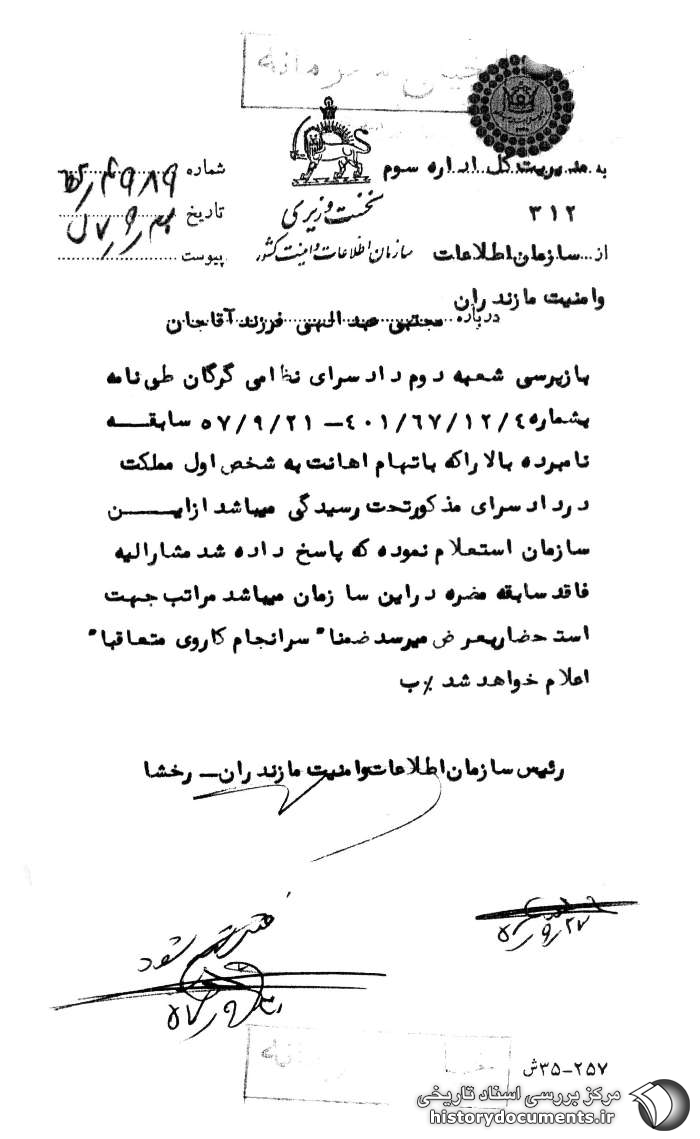 به مدیریت کل اداره سوم
۳۱۲
از سازمان اطلاعات
وامنیت مازندران
نخست وزیری
سازمان اطلاعات و امنیت کشور
شماره
تاریخ
پیوست
درباره مجتبی عبدالهی فرزند آقاجان
بازپرسی شعبه دوم دادسرای نظامی گرگان طی نامه
بشماره ۴۰۱/۶۷/۱۲/۴ – ۵۷/۹/۲۱ سابقه
نامبرده بالا راکه باتهام اهانت به شخص اول مملکت
دردادسرای مذکورتحت رسیدگی میباشد ازایـــن
سازمان استعلام نموده که پاسخ داده شد مشارالیه
فاقد سابقه مضره دراین سا زمان میباشد مراتب جهت
است حضاربعر ض میرسد ضمنا" سرانجام کاروی متعاقبا"
اعلام خواهد شد ٪ب
رئیس سازمان اطلاعات وامنیت مازندران – رخشا
شود
۳۵-۲۵۷ش
مرکز بررسی اسناد تاریخی
historydocuments.ir